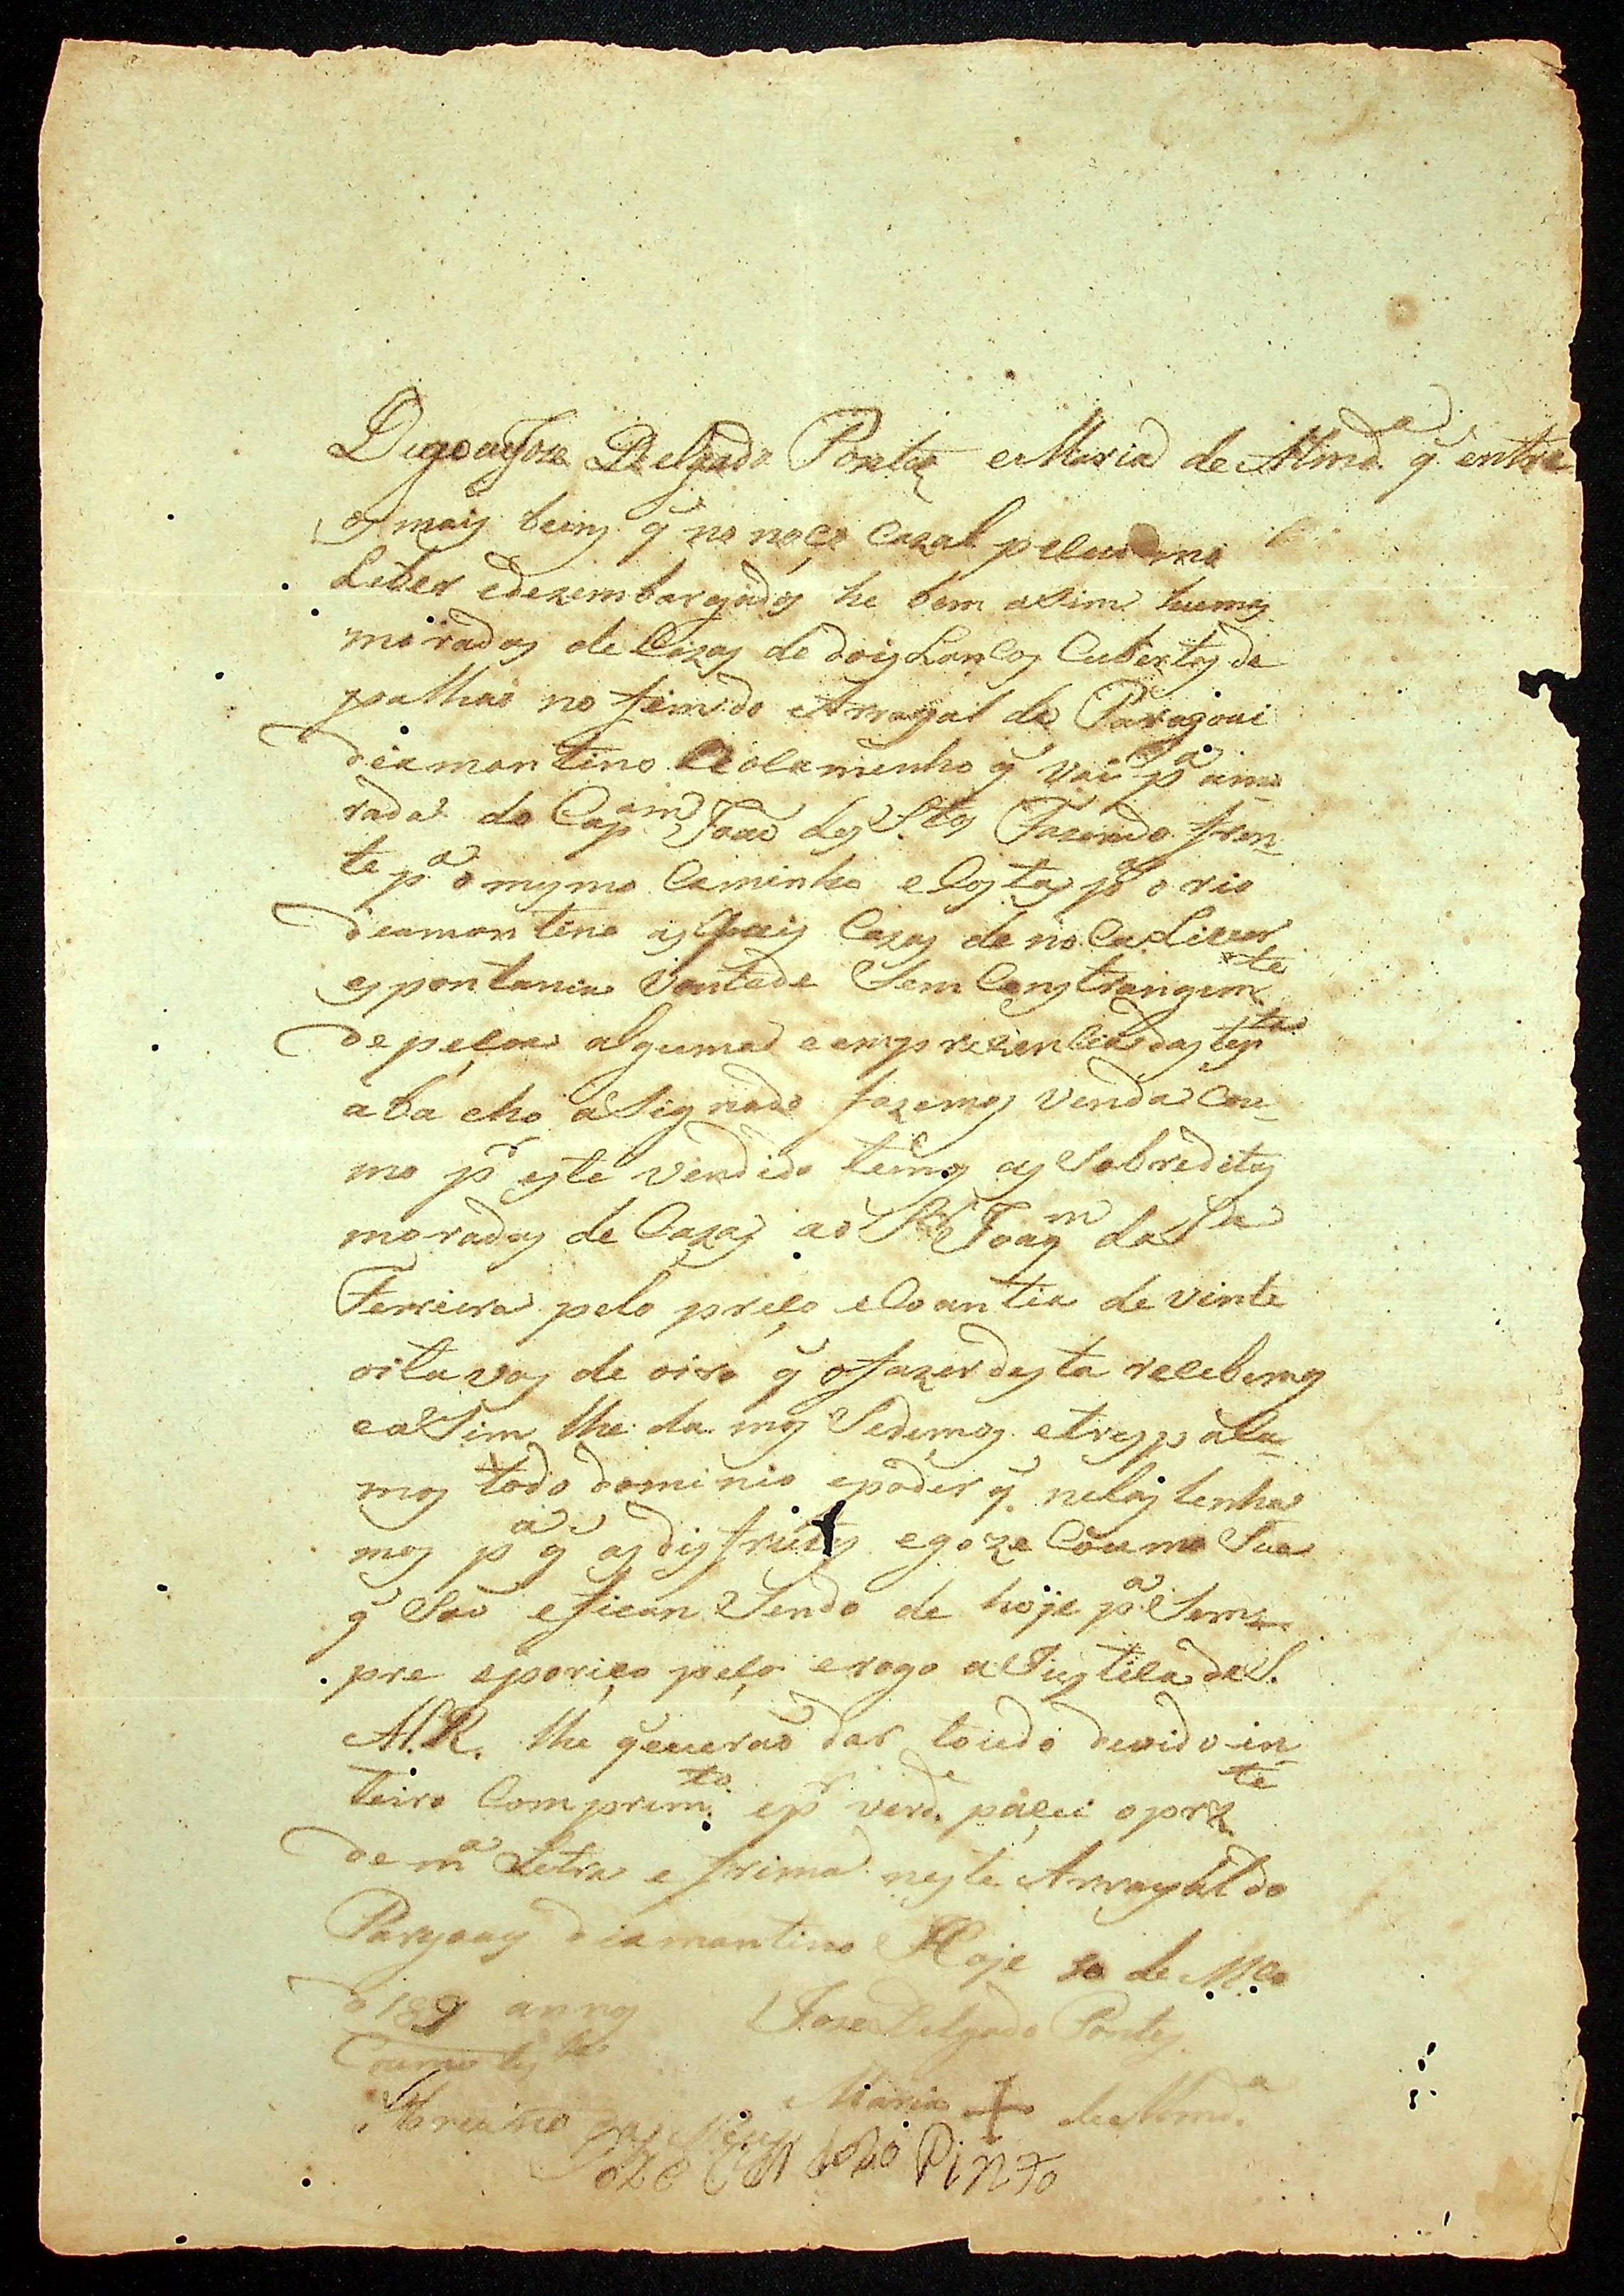 Digo eu Joze Delgado Pontes e Maria de Almd.ª q̃ entre
os mais beins q̃ no noço Cazal peluimo
Liber edezembargados he bem aSim humas
moradas de Cazas de dois Lanços Cubertas de
palhas no fim do Arrayal de Paragoai
diamantino ao Caminho q̃ vai pª amo
rada do Capam João dos Stos Fazendo fren
te pª o mesmo Caminho e Costas pª o rio
diamantino as Quais Cazas de noça Livre
espontania Vontade Sem Constrangimte
de peçoa alguma e em prezencia das testas
abacho aSignado fazemos Venda Cou
mo pr este vendido temos as Sobreditas
moradas de Cazas ao Sr Joaqm da Sa
Ferreira pelo preço e Coantia de vinte
oitavas de oiro q̃ ofazer desta recebemos
e aSim lhe damos Sedemos e trespaSa
mos todo dominio epoder q̃ nelas tenha
mos pª q̃ as disfrute egoze Coumo Sua
q̃ São eficam Sendo de hoje pª Sem
pre eporiço peço erogo a Justiça de S.
A.R. lhe queirão dar toudo devido in
teiro Comprimto. epr verde. paçei oprzte
de mª Letra e frima neste Arrayal do
Paragoay diamantino Hoje 10 de Mço
d 181 annos Joze Delgado Pontes
Coumo testa
Maria + de Almd.ª
Joze Pinto